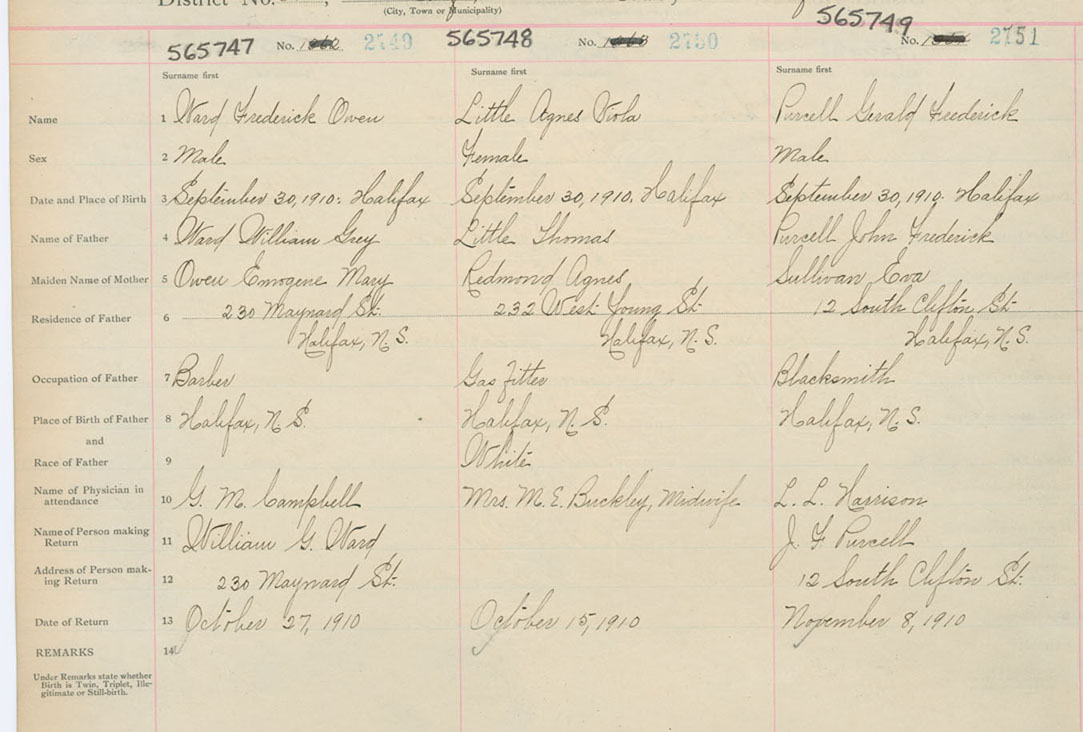 District No.
(City, Town or Municipality)
565747 No. 2749 565748 No. 2750 565749 No. 2751
Surname first Surname first Surname first
Name 1 Ward Frederick Owen Little Agnes Viola Purcell Gerald Frederick
Sex 2 Male Female Male
Date and Place of Birth 3 September 30, 1910. Halifax September 30, 1910. Halifax September 30, 1910. Halifax
Name of Father 4 Ward William Grey Little Thomas Purcell John Frederick
Maiden Name of Mother 5 Owen Emogene Mary Redmond Agnes Sullivan Eva
Residence of Father 6 230 Maynard St. 232 West Young St. 12 South Clifton St.
Halifax, N.S. Halifax, N.S. Halifax, N.S.
Occupation of Father 7 Barber Gas fitter Blacksmith
Place of Birth of Father 8 Halifax, N.S. Halifax, N.S. Halifax, N.S.
and
Race of Father 9 White
Name of Physician in
attendance 10 G. M. Campbell Mrs. M. E. Buckley, Midwife L. L. Harrison
Name of Person making
Return 11 William G. Ward J. F. Purcell
Address of Person mak-
ing Return 12 230 Maynard St. 12 South Clifton St.
Date of Return 13 October 27, 1910 October 15, 1910 November 8, 1910
REMARKS 14
Under Remarks state whether
Birth is Twin, Triplet, Ille-
gitimate or Still-birth.